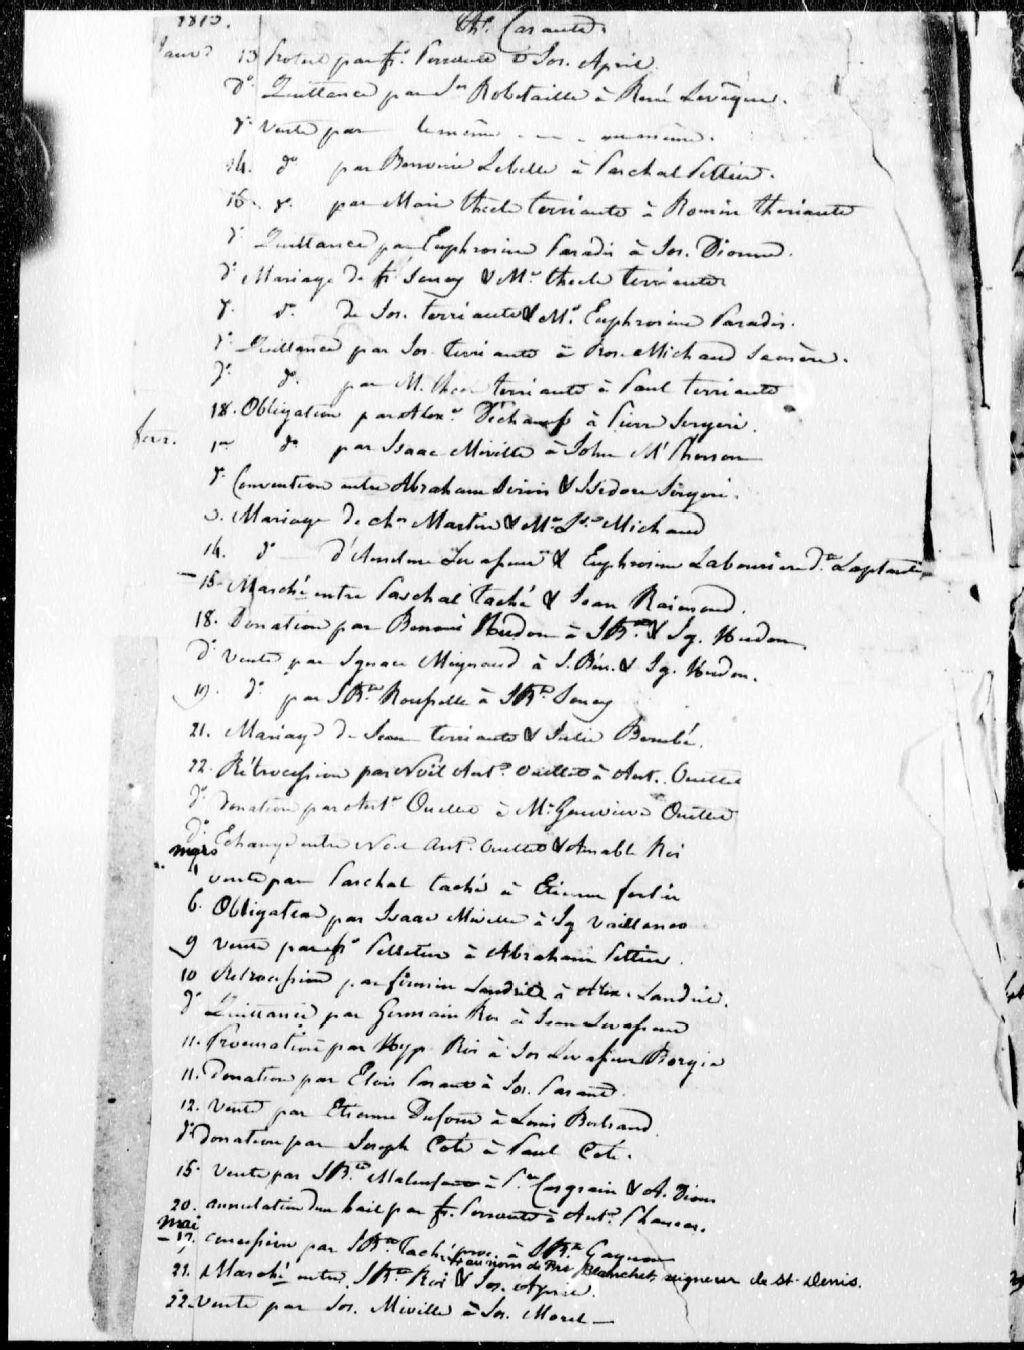 1813.
Janv.
13 Protest par fr. Terriault à Jos. April.
do. Quittance par Jn Robitaille à René Levêque.
do. Vente par le même - - - au même.
14. do par Benonie Lebelle à Paschal Pettier.
15. do. par Marie thecle terriault à Romain theriault
do. Quittance par Euphrosine Paradis à Jos. Dionne.
do. Mariage de fr. Soucy & Me thecle terriault
do. do. de Jos. terriault & Me Euphrosine Paradis.
do. Quittance par Jos. terriault à Michaud
do. do. par M. thecle terriault à Paul terriault
18. Obligation par Alexe. Déchamp à Pierre Sergerie.
fevr.
1er do par Isaac Miville à John
do. Convention entre Abraham & Isidore Sergerie.
Mariage de chs Martin & Me Michaud
14. do d'Anselme Levasseur & Euphrosine Labourière de Laplante
15. Marché entre Paschal Taché & Jean Raimond.
18. Donation par Benoni Hudon à J Bte & Ig. Hudon
do Vente par Ignace Meignaud à J. Ben. & Ig. Hudon.
19. do par J Bte Rousselle à J Bte Soucy
21. Mariage de Jean terriault & Julie Bérubé.
22. Rétrocession par Noël Ante Ouellet à Ant. Ouellet
do Donation par Ante Ouellet à Me Genevieve Ouellet
do. Echange entre Noel Ant. Ouellet & Amable Roi
mars
4 vente par Paschal taché à Etienne fortin
6. Obligation par Isaac Miville à Ig Vaillancou
9 Vente par fs Pelletier à Abraham Pettier.
10 Retrocession par firmin Landrie à Alex. Landrie.
do Quittance par Germain Roi à Jean Levasseur
11. Procuration par Hyp. Roi à Jos Levasseur Borgia
11. Donation par Elois Parant à Jos. Parant.
12. Vente par Etienne Dufour à Louis Bertrand
do Donation par Joseph Coté à Paul Coté.
15. Vente par J Bte à Pre Casgrain & A. Dionne
20. annulation d'un bail par fr. Terriault à Ante
mai
17. concession par J Bte Taché proc. à J Bte Gagnon
au nom de Blanchet, seigneur de St-Denis.
21. Marché entre J Bte Roi & Jos. April.
22 Vente par Jos. Miville à Jos. Morel